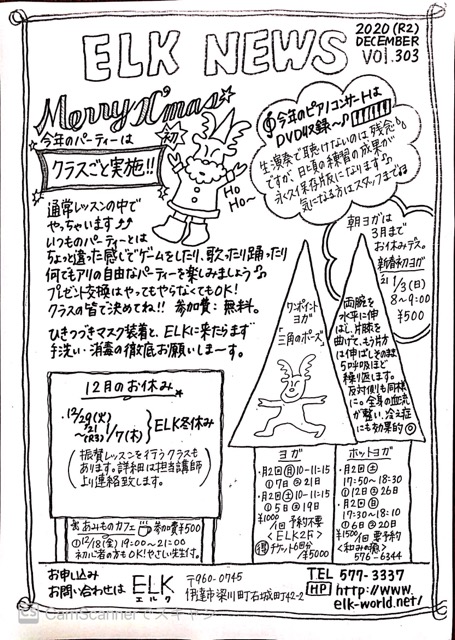 ELK NEWS
2020 (R2)
DECEMBER
VOl.303
Merry X'mas
今年のパーティーは
初
クラスごと実施!!
HO
HO〜
今年のピアノコンサートは
DVD収録〜♪
生演奏で聴けないのは残念
ですが、日頃の練習の成果が
永久保存版になります♪
気になる方はスタッフまで
通常レッスンの中で
やっちゃいます♪♪
いつものパーティーとは
ちょと違った感じでゲームをしたり、歌ったり踊ったり
何でもアリの自由なパーティを楽しみましょう♪
プレゼント交換はやってもやらなくてもOK!
クラスの皆で決めてね!! 参加費:無料。
ひきつづきマスク装着と、ELKに来たらまず
手洗い・消毒の徹底お願いしま〜す。
朝ヨガは
3月まで
お休みデス。
新春初ヨガ
'21 1/3(日)
8〜9:00
¥500
ワンポイント
ヨガ
「三角のポーズ」
両腕を
水平に伸
ばし、片膝を
曲げて、もう片方
は伸ばしそのまま
5呼吸ほど
繰り返します。
反対側も同様
に。全身の血流
が整い、冷え症
にも効果的◎
12月のお休み
12/29(火)
〜'21(R3)1/7(木)
ELK冬休み
(振替レッスンを行うクラスも
あります。詳細は担当講師
より連絡致します。)
あみものカフェ 参加費¥500
①12/18(金)19:00〜21:00
初心者の方もOK!やさしい先生付。
ヨガ
・月2回(月)10-11:15
①7日②21日
・月2回(土)10-11:15
①5日②19日
¥1000/1回 予約不要
<ELK2F>
得 チケット6回分
/¥5000
ホットヨガ
・月2回(土)
17:50〜18:30
①12日②26日
・月2回(日)
17:30〜18:10
①6日②20日
¥1500/1回 要予約
<和みの癒>
576-6344
お申し込み
お問い合わせは
ELK
エルク
〒960-0745
伊達市梁川町右城町42-2
TEL 577-3337
HP http://www.
elk-world.net/
CS CamScannerでスキャン